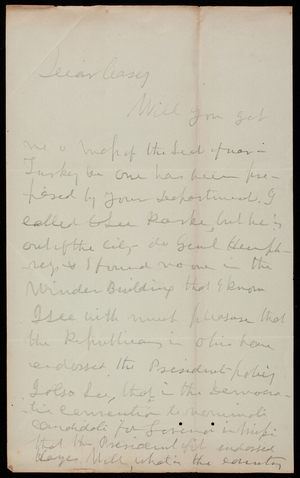 Dear Casey
Will you get
me a map of the Seat of war in
Turkey, be one has been pre-
pared by your Department. I
called to see Parke, but he is
out of the city - do Genl Humph-
reys & I found no one in the
Winder Building that I know
I see with much pleasure that
the Republicans in Ohio have
endorsed the President policy
I also see, that in the Democra-
tic convention to nominate
candidate for Governor in
that the President endorsed
Hayes Well, what is the country